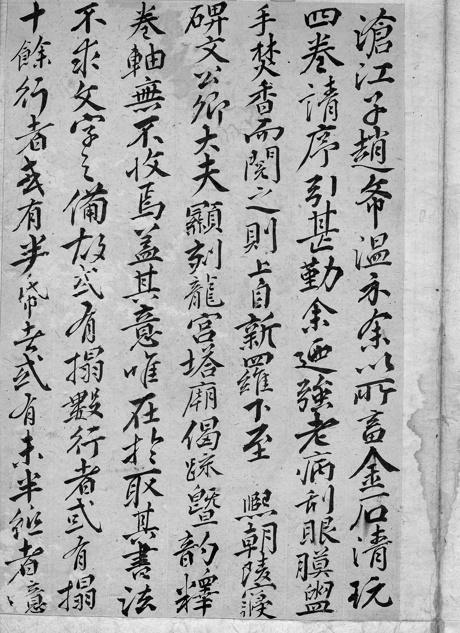 滄江子趙希溫示余以所畜金石清玩
四卷請序引甚勤余迺強老病刮眼膜盥
手焚香而閱之則上自新羅下至 熙朝陵寢
碑文公卿大夫顯刻龍宮塔廟偈疏曁韵釋
卷軸無不收焉盖其意唯在於取其書法
不求文字之備故或有搨數行者或有搨
十餘行者或有半帋者或有未半紙者意